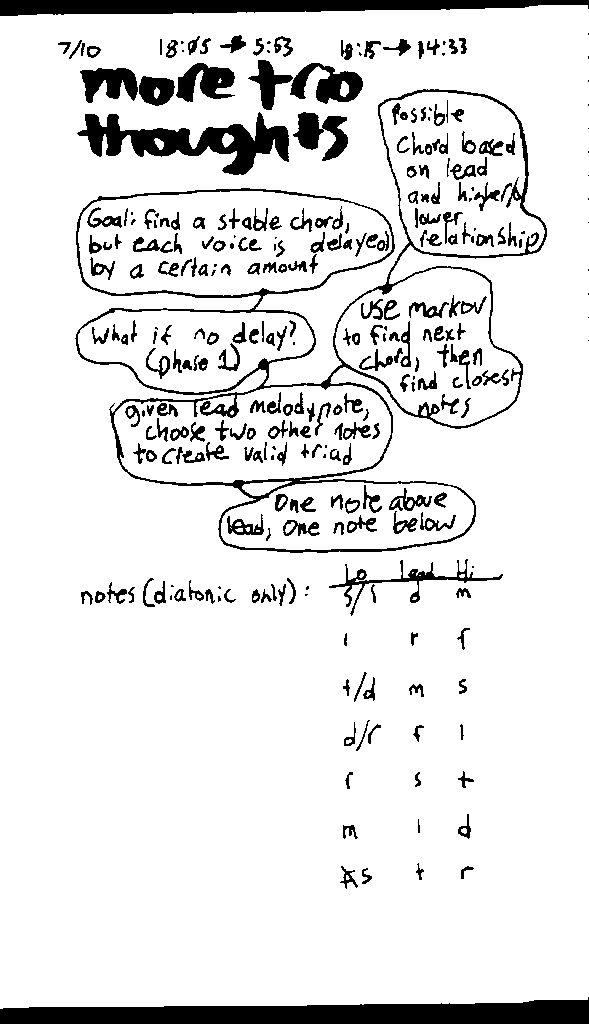 7/10 18:05 → 5:53 18:15 → 14:33
more trio
thoughts
Possible
Chord based
on lead
and higher/
lower
relationship
Goal: find a stable chord,
but each voice is delayed
by a certain amount
What if no delay?
(phase 1)
use markov
to find next
chord, then
find closest
notes
given lead melody note,
choose two other notes
to create valid triad
One note above
lead, One note below
notes (diatonic only):
Lo Lead Hi
s/l d m
l r f
t/d m s
d/r f l
r s t
m l d
s t r